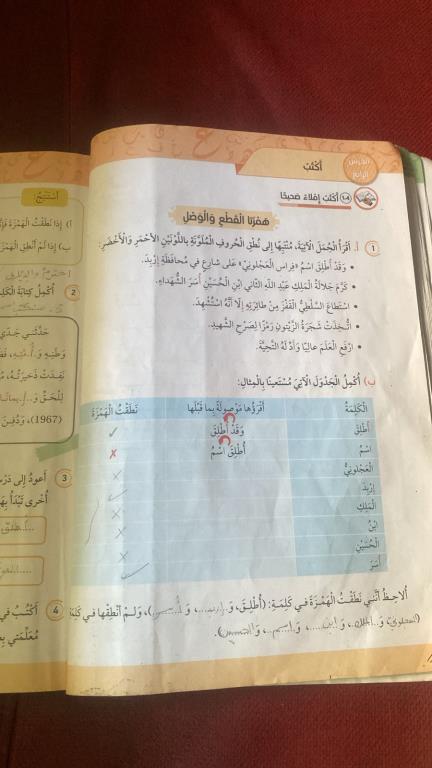 الدرس الرابع
أَكْتُبُ
١-٤ أَكْتُبُ إِمْلاءً صَحيحًا
هَمْزَتا الْقَطْعِ وَالْوَصْلِ
1 أ. أَقْرَأُ الْجُمَلَ الْآتِيَةَ، مُنْتَبِهًا إِلى نُطْقِ الْحُروفِ الْمُلَوَّنَةِ بِاللَّوْنَيْنِ الْأَحْمَرِ وَالْأَخْضَرِ:
• وَقَدْ أُطْلِقَ اسْمُ «فِراس الْعَجْلونِيّ» عَلى شارِعٍ في مُحافَظَةِ إِرْبِدَ.
• كَرَّمَ جَلالَةُ الْمَلِكِ عَبْدِ اللّٰهِ الثّاني ابْنِ الْحُسَيْنِ أُسَرَ الشُّهَداءِ.
• اسْتَطاعَ السَّلْطِيُّ الْقَفْزَ مِنْ طائِرَتِهِ إِلّا أَنَّهُ اسْتُشْهِدَ.
• اتُّخِذَتْ شَجَرَةُ الزَّيْتونِ رَمْزًا لِصَرْحِ الشَّهيدِ.
• ارْفَعِ الْعَلَمَ عالِيًا وَأَدِّ لَهُ التَّحِيَّةَ.
ب) أُكْمِلُ الْجَدْوَلَ الْآتِيَ مُسْتَعينًا بِالْمِثالِ:
الْكَلِمَةُ أَقْرَؤُها مَوْصولَةً بِما قَبْلَها نَطَقْتُ الْهَمْزَةَ
أُطْلِقَ وَقَدْ أُطْلِقَ ✓
اسْمُ أُطْلِقَ اسْمُ ✗
الْعَجْلونِيُّ ✗
إِرْبِدَ ✓
الْمَلِكِ ✗
ابْنُ ✗
الْحُسَيْنِ ✗
أُسَرَ ✓
أُلاحِظُ أَنَّني نَطَقْتُ الْهَمْزَةَ في كَلِمَةِ: (أُطْلِقَ، وَ إربد، وَ أسر)، وَلَمْ أَنْطِقْها في كَلِمَةِ
(العجلوني، وَ الملك، وَ ابن، وَ اسم، وَ الحسين).
أَسْتَنْتِجُ
أ) إِذا نَطَقْتُ الْهَمْزَةَ
ب) إِذا لَمْ أَنْطِقِ الْهَمْزَةَ
2 أُكْمِلُ كِتابَةَ
حَدَّثَني جَدّي
نَفِدَتْ ذَخيرَتُهُ،
(1967)، وَدُفِنَ
3 أَعودُ إِلى
أُخْرى تَبْدَأُ
4 أَكْتُبُ في
مُعَلِّمَتي